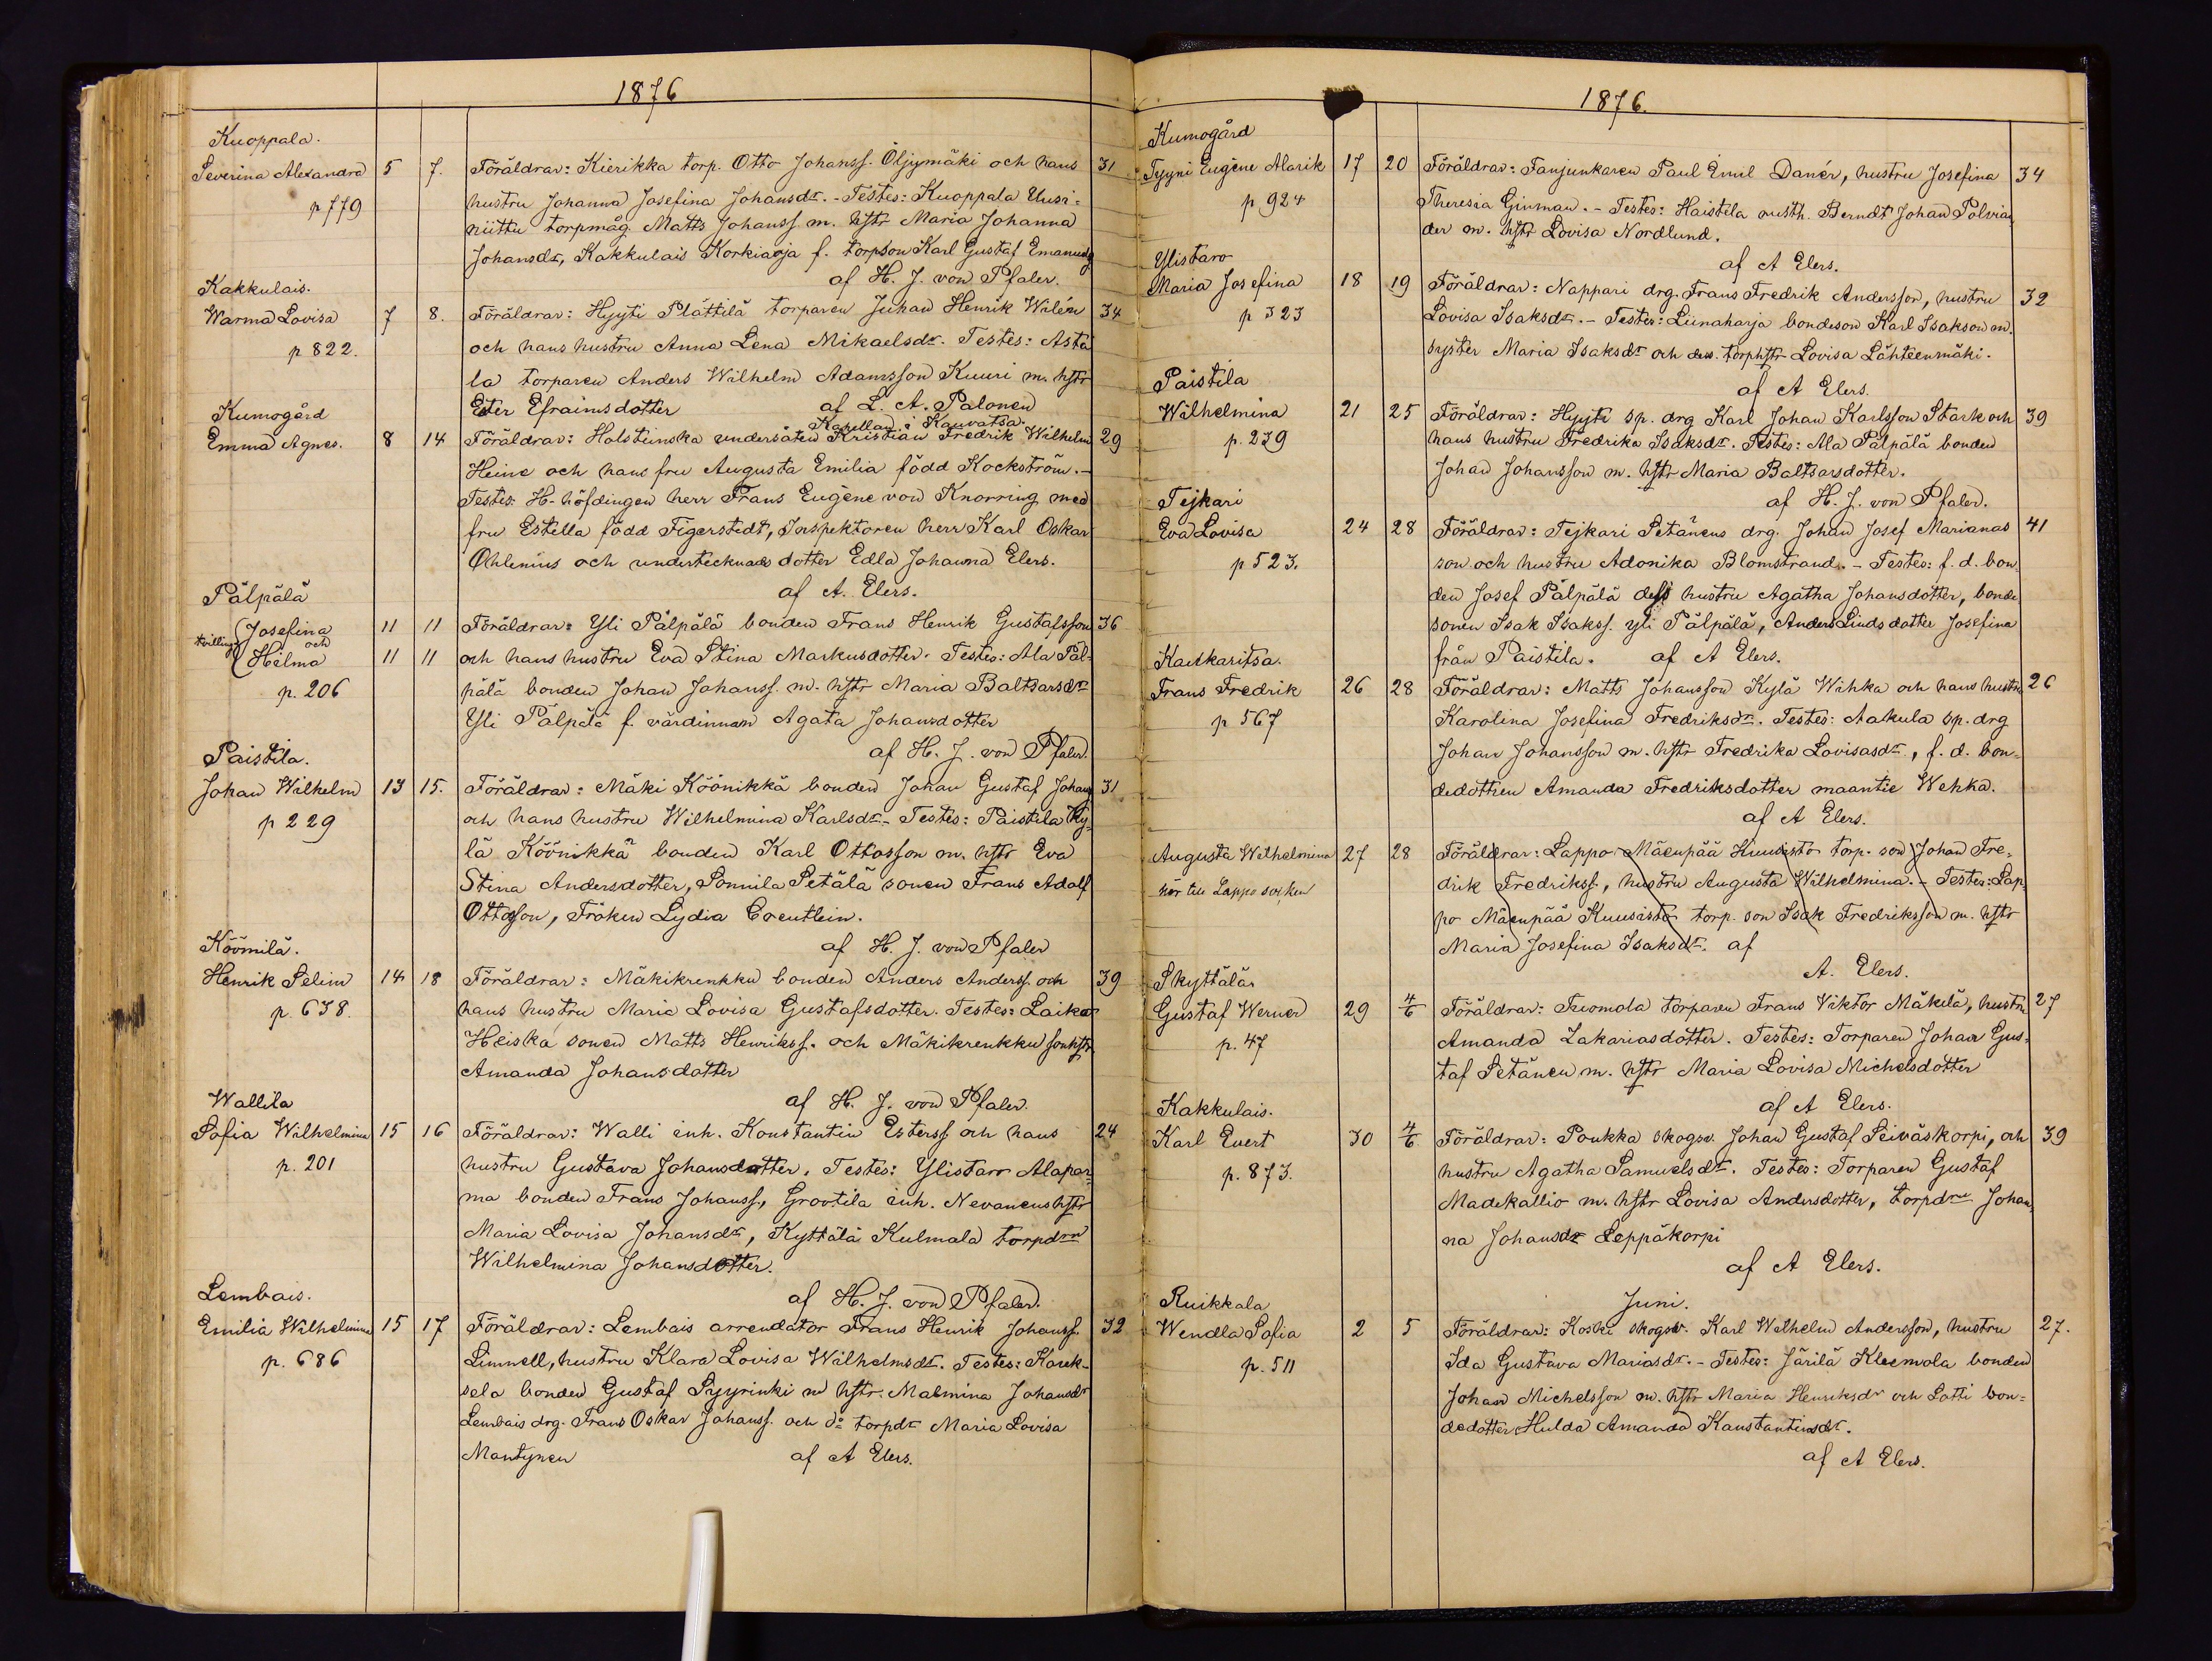 1876
Kuoppala.
Severina Alexandra 5 7. Föräldrar: Kierikka torp. Otto Johanss. Öljymäki och hans 31
p 779 hustru Johanna Josefina Johansdr. - Testes: Kuoppala Uusi-
niittu torpmåg Matts Johanss. m. hstr Maria Johanna
Johansdr, Kakkulais Korkiaoja f. torpson Karl Gustaf Emanuels
af H. J. von Pfaler.
Kakkulais.
Warma Lovisa 7 8. Föräldrar: Hyyti Plättilä torparen Juhan Henrik Wilén 34
p 822. och hans hustru Anna Lena Mikaelsdr. Testes: Asta
la torparen Anders Wilhelm Adamsson Kuuri m. hstr
Ester Efraimsdotter af L. A. Palonen
Kapellan i Kauvatsa.
Kumogård
Emma Agnes. 8 14 Föräldrar: Holsteinska undersåten Kristian Fredrik Wilhelm 29
Heine och hans fru Augusta Emilia född Kockström. -
Testes: H-höfdingen herr Frans Eugène von Knorring med
fru Estella född Tigerstedt, Inspektoren herr Karl Oskar
Ohlenius och undertecknads dotter Edla Johanna Elers.
af A. Elers.
Pälpälä
tvilling Josefina 11 11 Föräldrar: Yli Pälpälä bonden Frans Henrik Gustafsson 36
och
Hilma 11 11 och hans hustru Eva Stina Markusdotter. Testes: Ala Päl-
p. 206 pälä bonden Johan Johanss. m. hstr Maria Baltsarsdr
Yli Pälpälä f. värdinnan Agata Johansdotter
af H. J. von Pfaler.
Paistila.
Johan Wilhelm 13 15. Föräldrar: Mäki Köönikkä bonden Johan Gustaf Johans 31
p 229 och hans hustru Wilhelmina Karlsdr - Testes: Paistila Ky-
lä Köönikkä bonden Karl Ottosson m. hstr Eva
Stina Andersdotter, Sonnila Setälä sonen Frans Adolf
Ottosson, Fröken Lydia
af H. J. von Pfaler
Köömilä.
Henrik Selim 14 18 Föräldrar: Mäkikrenkku bonden Anders Anderss. och 39
p. 638. hans hustru Maria Lovisa Gustafsdotter. Testes: Laika
Heiska sonen Matts Henrikss. och Mäkikrenkku sonhstr
Amanda Johansdotter
af H. J. von Pfaler.
Wallila
Sofia Wilhelmina 15 16 Föräldrar: Walli inh. Konstantin Esterss och hans 24
p. 201 hustru Gustava Johansdotter. Testes: Ylistaro Alapar-
ma bonden Frans Johanss, Grootila inh. Nevanens hstr
Maria Lovisa Johansdr, Kyttälä Kulmala torpdrn
Wilhelmina Johansdotter.
af H. J. von Pfaler.
Lembais.
Emilia Wilhelmina 15 17 Föräldrar: Lembais arrendator Frans Henrik Johanss. 32
p. 686 Limnell, hustru Klara Lovisa Wilhelmsdr. Testes: Kouk-
sela bonden Gustaf Syyrinki m hstr. Malmina Johansdr
Lembais drg. Frans Oskar Johanss. och do torpdr Maria Lovisa
Mantynen af A Elers.
1876.
Kumogård
Tyyni Eugène Alarik 17 20 Föräldrar: Fanjunkaren Paul Emil Danér, hustru Josefina 34
p 924 Theresia Girman. - Testes: Haistila rusth. Berndt Johan Polvian
der m. hstr Lovisa Nordlund.
af A Elers.
Ylistaro
Maria Josefina 18 19 Föräldrar: Nappari drg. Frans Fredrik Andersson, hustru 32
p 323 Lovisa Isaksdr. - Testes: Liinaharja bondeson Karl Isakson m.
syster Maria Isaksdr och dess. torphstr Lovisa Lähteenmäki.
af A Elers.
Paistila
Wilhelmina 21 25 Föräldrar: Hyyti sp. drg Karl Johan Karlsson Stark och 39
p. 239 hans hustru Fredrika Isaksdr. Testes: Ala Pälpälä bonden
Johan Johansson m. hstr Maria Baltsarsdotter.
af H. J. von Pfaler.
Tejkari
Eva Lovisa 24 28 Föräldrar: Tejkari Setänens drg. Johan Josef Marianas 41
p 523. son och hustru Adonika Blomstrand. - Testes: f. d. bon
den Josef Pälpälä dess hustru Agatha Johansdotter, bonde
sonen Isak Isakss. yli Pälpälä, Anders Linds dotter Josefina
från Paistila. af A Elers.
Kaukaritsa.
Frans Fredrik 26 28 Föräldrar: Matts Johansson Kylä Wihka och hans hustru 26
p 567 Karolina Josefina Fredriksdr. Testes: Aakula sp. drg
Johan Johansson m. hstr Fredrika Lovisasdr, f. d. bon-
dedottren Amanda Fredriksdotter maantie Wehka.
af A Elers.
Augusta Wilhelmina 27 28 Föräldrar: Lappo Mäenpää Kuusisto torp. son Johan Fre-
hör till Lappo socken drik Fredrikss, hustru Augusta Wilhelmina. - Testes: Lap-
po Mäenpää Kuusisto torp. son Isak Fredriksson m. hstr
Maria Josefina Isaksdr. af
A. Elers.
Skyttälä
Gustaf Werner 29 4/6 Föräldrar: Tuomola torparen Frans Viktor Mäkilä, hustru 27
p. 47 Amanda Zakariasdotter. Testes: Torparen Johan Gus-
taf Setänen m. hstr Maria Lovisa Michelsdotter
af A Elers.
Kakkulais.
Karl Evert 30 4/6 Föräldrar: Poukka skogsv. Johan Gustaf Seiväskorpi, och 39
p. 873. hustru Agatha Samuelsdr. Testes: Torparen Gustaf
Madekallio m. hstr Lovisa Andersdotter, torpdrn Johan-
na Johansdr Leppäkorpi
af A Elers.
Juni.
Ruikkala
Wendla Sofia 2 5 Föräldrar: Koski skogsv. Karl Wilhelm Andersson, hustru 27.
p. 511 Ida Gustava Mariasdr. - Testes: Järilä Kleemola bonden
Johan Michelsson m. hstr Maria Henriksdr och Lotti bon-
dedotter Hulda Amanda Konstantinsdr.
af A Elers.